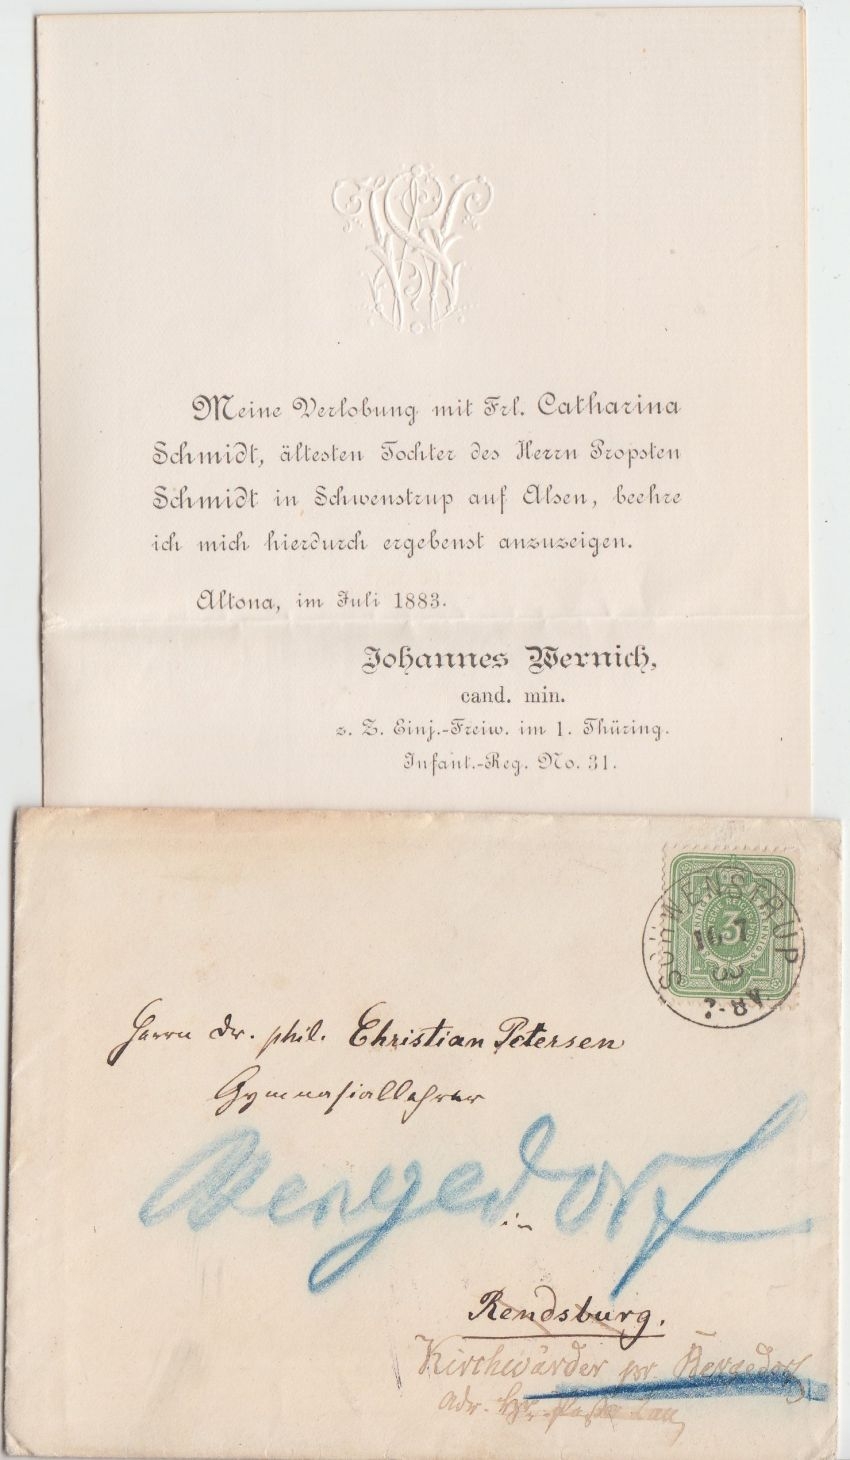 Meine Verlobung mit Frl. Catharina
Schmidt, ältesten Tochter des Herrn Propsten
Schmidt in Schwenstrup auf Alsen, beehre
ich mich hierdurch ergebenst anzuzeigen.
Altona, im Juli 1883.
Johannes Wernich,
cand. min.
z. Z. Einj.-Freiw. im 1. Thüring.
Infant.-Reg. No. 31.
SCHWENSTRUP
3
Herrn Dr. phil. Christian Petersen
Gymnasiallehrer
Bergedorf
in
Rendsburg.
Kirchwärder pr. Bergedorf
Adr. Hr.